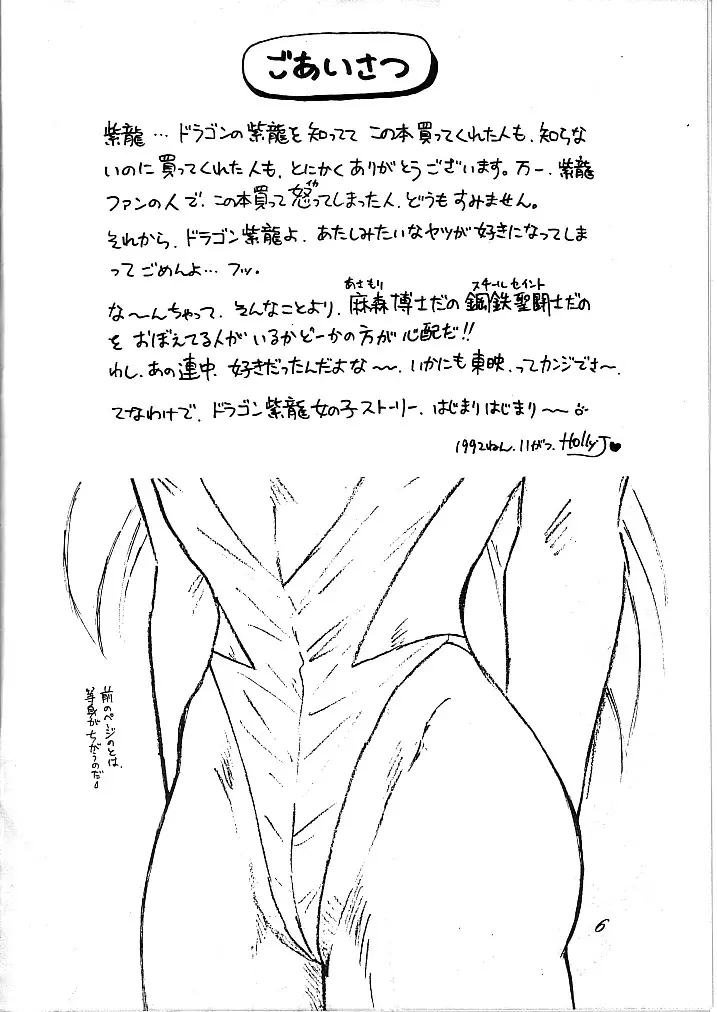 ごあいさつ
紫龍…ドラゴンの紫龍を知ってて この本買ってくれた人も、知らな
いのに買ってくれた人も、とにかくありがとうございます。万一、紫龍
ファンの人で、この本買って怒ってしまった人、どうもすみません。
それから、ドラゴン紫龍よ、あたしみたいなヤツが好きになってしま
ってごめんよ…フッ。
な〜んちゃって、そんなことより、麻森博士だの鋼鉄聖闘士だの
あさもり スチールセイント
をおぼえてる人がいるかどーかの方が心配だ!!
わし、あの連中、好きだったんだよな〜〜、いかにも東映、ってカンジでさ〜、
てなわけで、ドラゴン紫龍女の子ストーリー、はじまりはじまり〜〜
1992ねん、11がつ、Holly J♥
前のページのとは、
等身がちがうのだ。
6